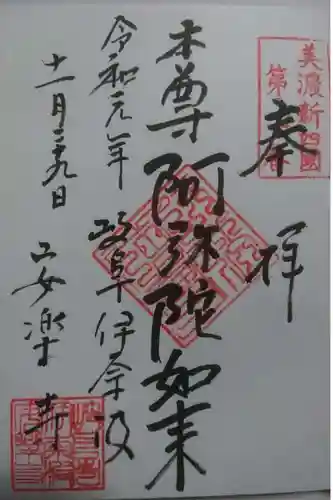 奉拝
本尊阿弥陀如来
岐阜伊奈波
令和元年
十一月二十九日
安楽寺
美濃新四國
第